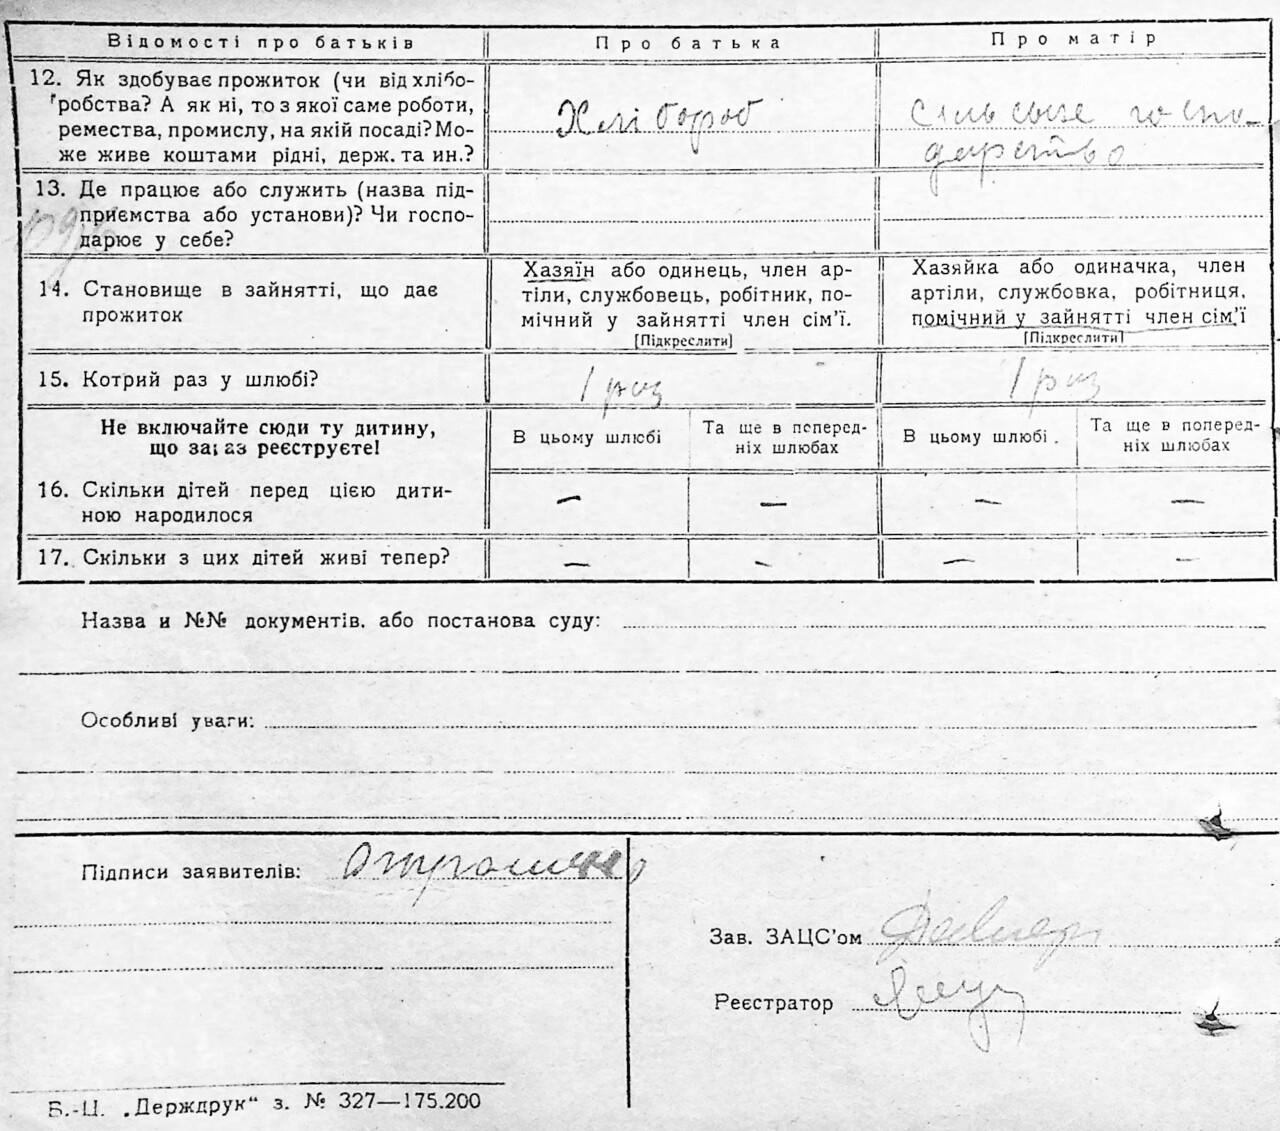 Відомості про батьків
Про батька
Про матір
12. Як здобуває прожиток (чи від хлібо-
робства? А як ні, то з якої саме роботи,
ремества, промислу, на якій посаді? Мо-
же живе коштами рідні, держ. та ин.?
Хлібороб
Сільське госпо-
дарство
13. Де працює або служить (назва під-
приємства або установи)? Чи госпо-
дарює у себе?
14. Становище в зайнятті, що дає
прожиток
Хазяїн або одинець, член ар-
тіли, службовець, робітник, по-
мічний у зайнятті член сім'ї.
[Підкреслити]
Хазяйка або одиначка, член
артіли, службовка, робітниця,
помічний у зайнятті член сім'ї
[Підкреслити]
15. Котрий раз у шлюбі?
1 раз
1 раз
Не включайте сюди ту дитину,
що зараз реєструєте!
В цьому шлюбі
Та ще в поперед-
ніх шлюбах
В цьому шлюбі.
Та ще в поперед-
ніх шлюбах
16. Скільки дітей перед цією дити-
ною народилося
— — — —
17. Скільки з цих дітей живі тепер?
— — — —
Назва и №№ документів. або постанова суду:
Особливі уваги:
Підписи заявителів:
Зав. ЗАЦС'ом
Реєстратор
Б.-Ц. „Держдрук“ з. № 327—175.200